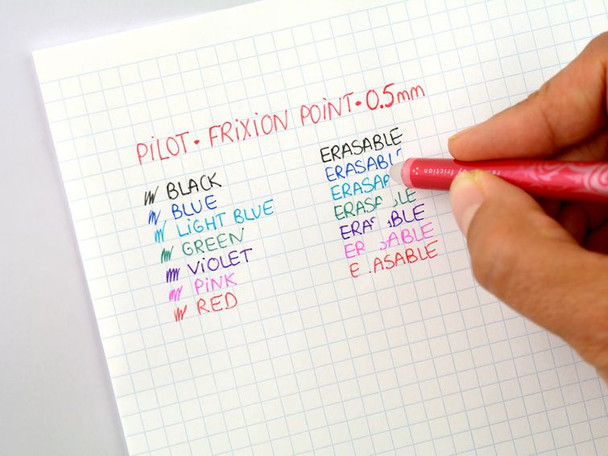 PILOT • FRIXION POINT • 0.5mm
BLACK
BLUE
LIGHT BLUE
GREEN
VIOLET
PINK
RED
ERASABLE
ERASABL
ERASA
ERA LE
ERA BLE
ER SABLE
E ASABLE
friction